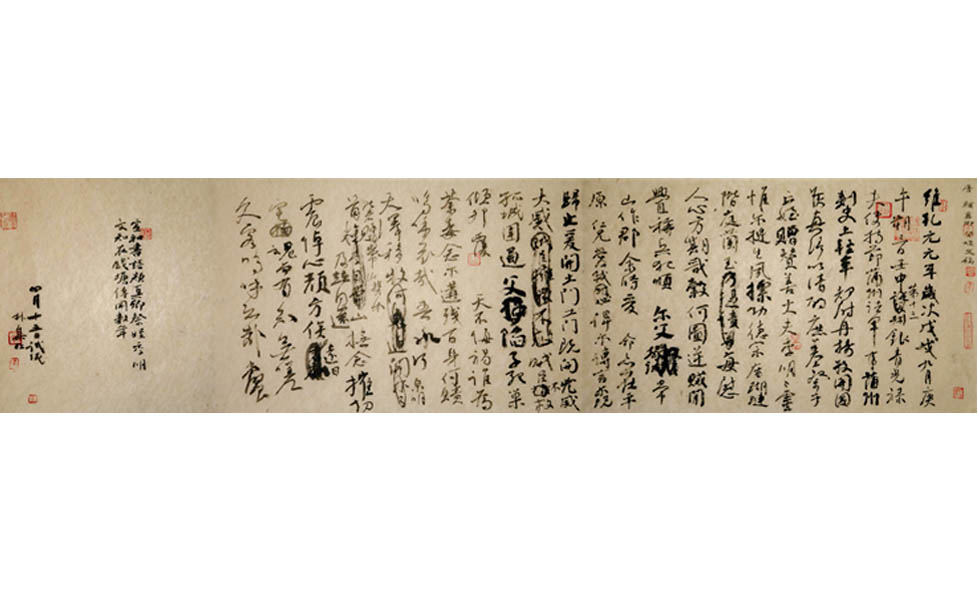 唐顏真卿祭姪文稿
維乾元元年歲次戊戌九月庚
午朔三日壬申第十三叔銀青光祿
夫使持節蒲州諸軍事蒲州
刺史上輕車都尉丹楊縣開國
侯真卿以清酌庶羞祭于
亡姪贈贊善大夫季明之靈
惟爾挺生夙標幼德宗廟瑚璉
階庭蘭玉每慰
人心方期戩穀何圖逆賊間
釁稱兵犯順爾父竭誠常
山作郡余時受命亦在平
原仁兄愛我俾爾傳言爾既
歸止爰開土門土門既開凶威
大蹙賊臣不救
孤城圍逼父陷子死巢
傾卵覆天不悔禍誰為
荼毒念爾遘殘百身何贖
嗚呼哀哉吾承
天澤移牧河關泉明
首櫬及茲同還撫念摧切
震悼心顏方俟遠日
魂而有知無嗟
久客嗚呼哀哉尚饗
宣和書譜顏真卿祭姪季明
文知在錢塘傳聞數年
四月十五日試識